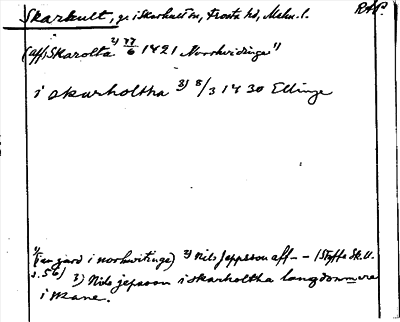 Skarhult, gd i Skarhult sn, Frosta hd, Malm. l. RAP.
(aff) Skarolta 2) 27/6 1421 Norrhvidinge 1)
i skarholtha 3) 8/3 1430 Ellinge
1) (en gård i norhwitinge) 2) Nils Jeppsson aff - - (Styffe Sk.U.
s. 56) 3) Nils jepsson i skarholtha langdommere
i skane.